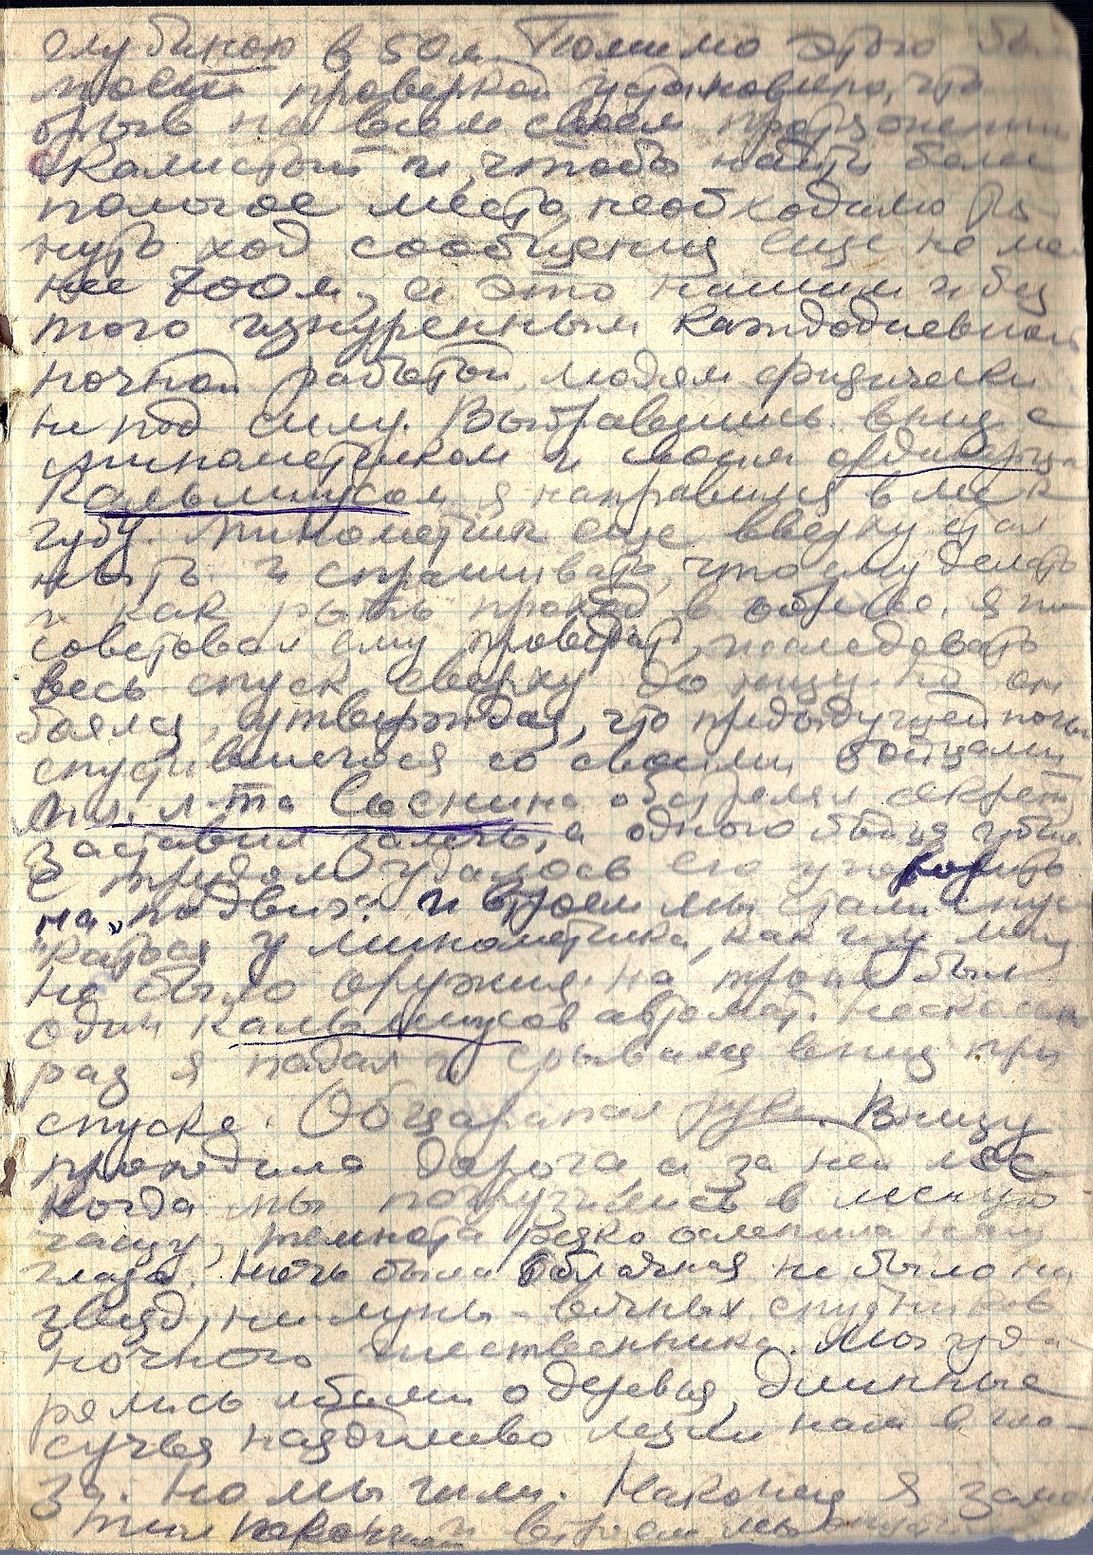 глубиною в 50 м. Помимо этого бы
моей проверкой установлено, что
обрыв на всем своем протяжении
скалистый и, чтобы найти более
пологое место, необходимо
нуть ход сообщения еще не ме
нее 700 м, а это нашим и без
того изнуренным каждодневной
ночной работой людям физически
не под силу. Выбравшись вниз с
минометчиком и своим ординарцем
Кальмиусом я направился в лес к
губу. Минометчик еще вверху стал
ныть и спрашивать, что ему делать
и как рыть проход в обрыве. Я по
советовал ему проверить, исследовать
весь спуск сверху до низу. Но он
боялся, утверждая, что предыдущей ночью
спустившегося со своими бойцами
мл. л-та Соснина обстрелял секрет
заставил залечь, а одного бойца убил
С трудом удалось его уговорить
на „подвиг“ и втроем мы стали спус
каться у минометчика, как и у меня
не было оружия. На троих был
один Кальмиусов автомат. Несколько
раз я падал и срывался вниз при
спуске. Обцарапал руки. Внизу
проходила дорога а за ней лес
Когда мы погрузились в лесную
чащу, темнота резко ослепила наши
глаза. Ночь была облачная не было ни
звезд, ни луны – вечных спутников
ночного шественника. Мы уда
рялись лбами о деревья, длинные
сучья назойливо лезли нам в гла-
за. Но мы шли. Наконец я заме
тил